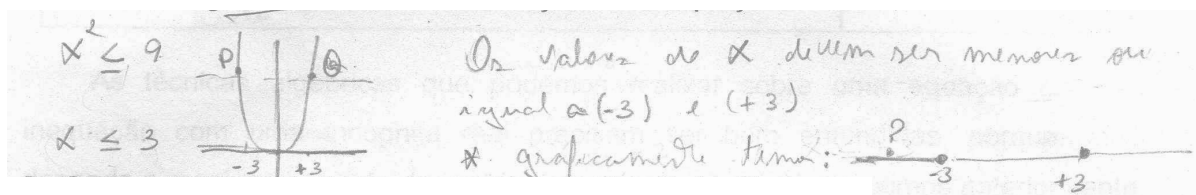 x² ≤ 9
P Q
Os valores de x devem ser menores ou
igual a (-3) e (+3)
x ≤ 3
-3 +3
* graficamente temos:
?
-3
+3